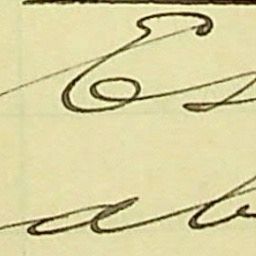 Es
ab